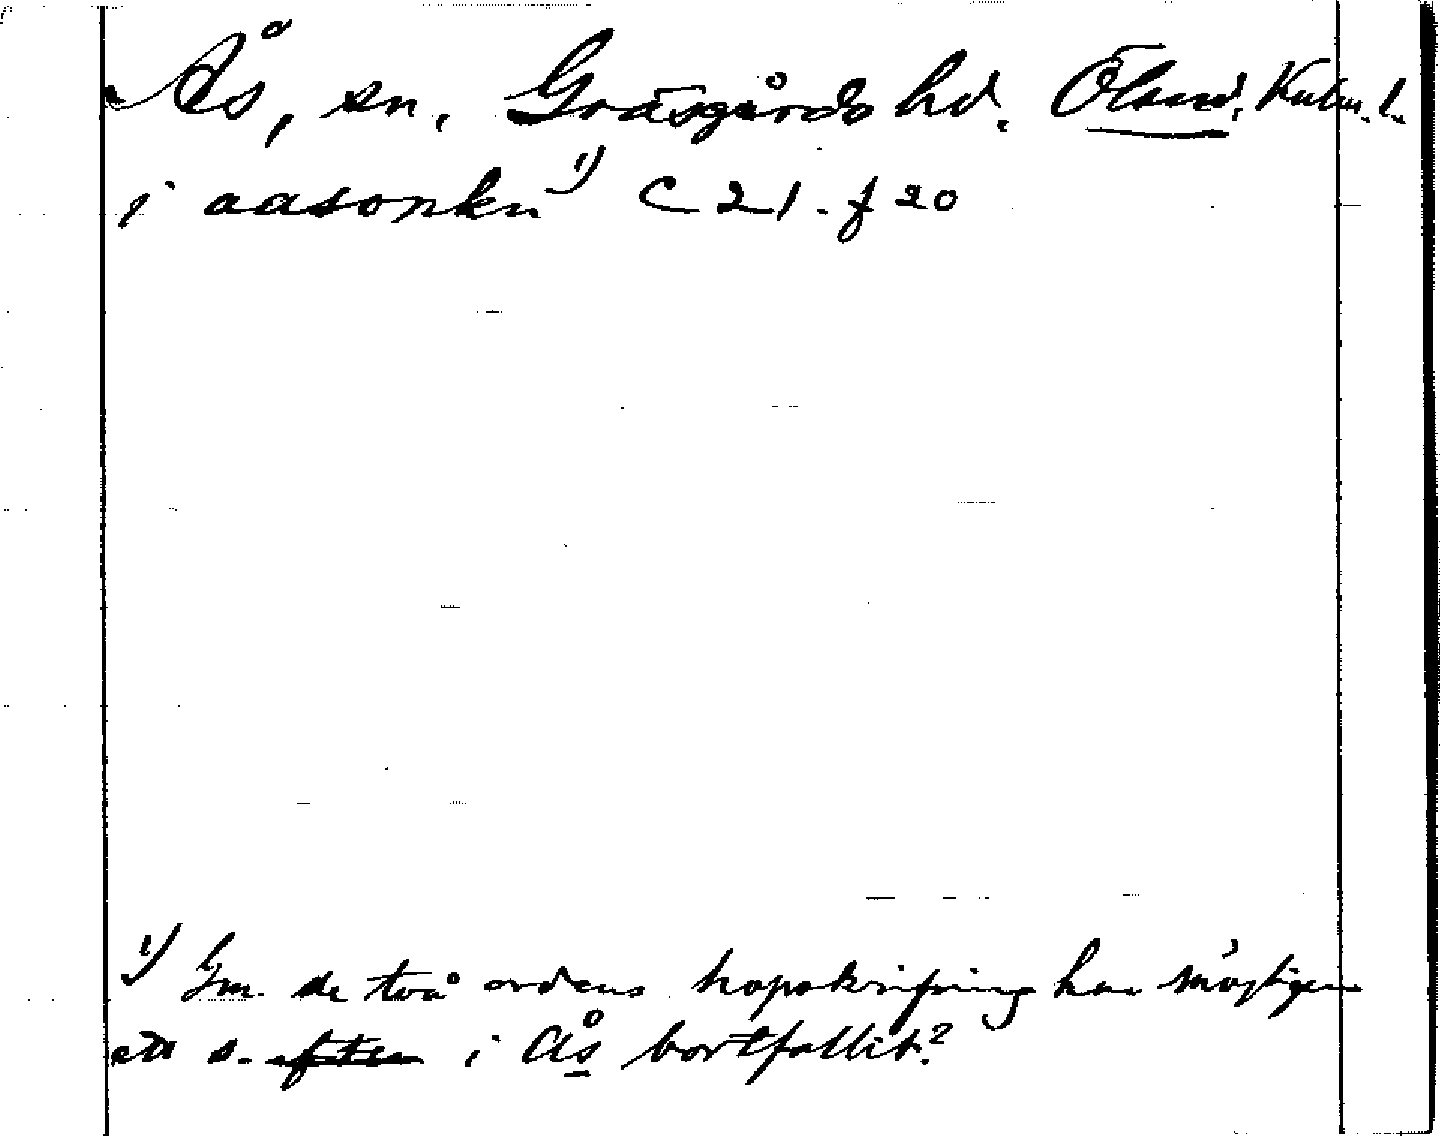 Ås, sn, Gräsgårds hd. Öland. Kalm. l.
i aasonkn 1) C 21. f 20
1) Gm. de två ordens hopskrifning har möjligen
ett s. efter i Ås bortfallit?